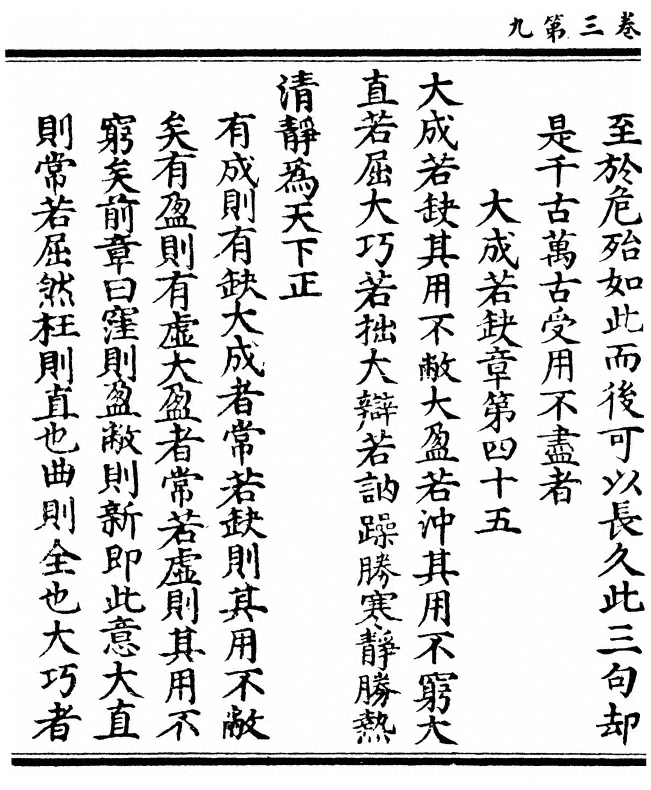 卷三第九
至於危殆如此而後可以長久此三句却
是千古萬古受用不盡者
大成若缺章第四十五
大成若缺其用不敝大盈若沖其用不窮大
直若屈大巧若拙大辯若訥躁勝寒靜勝熱
清靜爲天下正
有成則有缺大成者常若缺則其用不敝
矣有盈則有虛大盈者常若虛則其用不
窮矣前章曰窪則盈敝則新即此意大直
則常若屈然枉則直也曲則全也大巧者